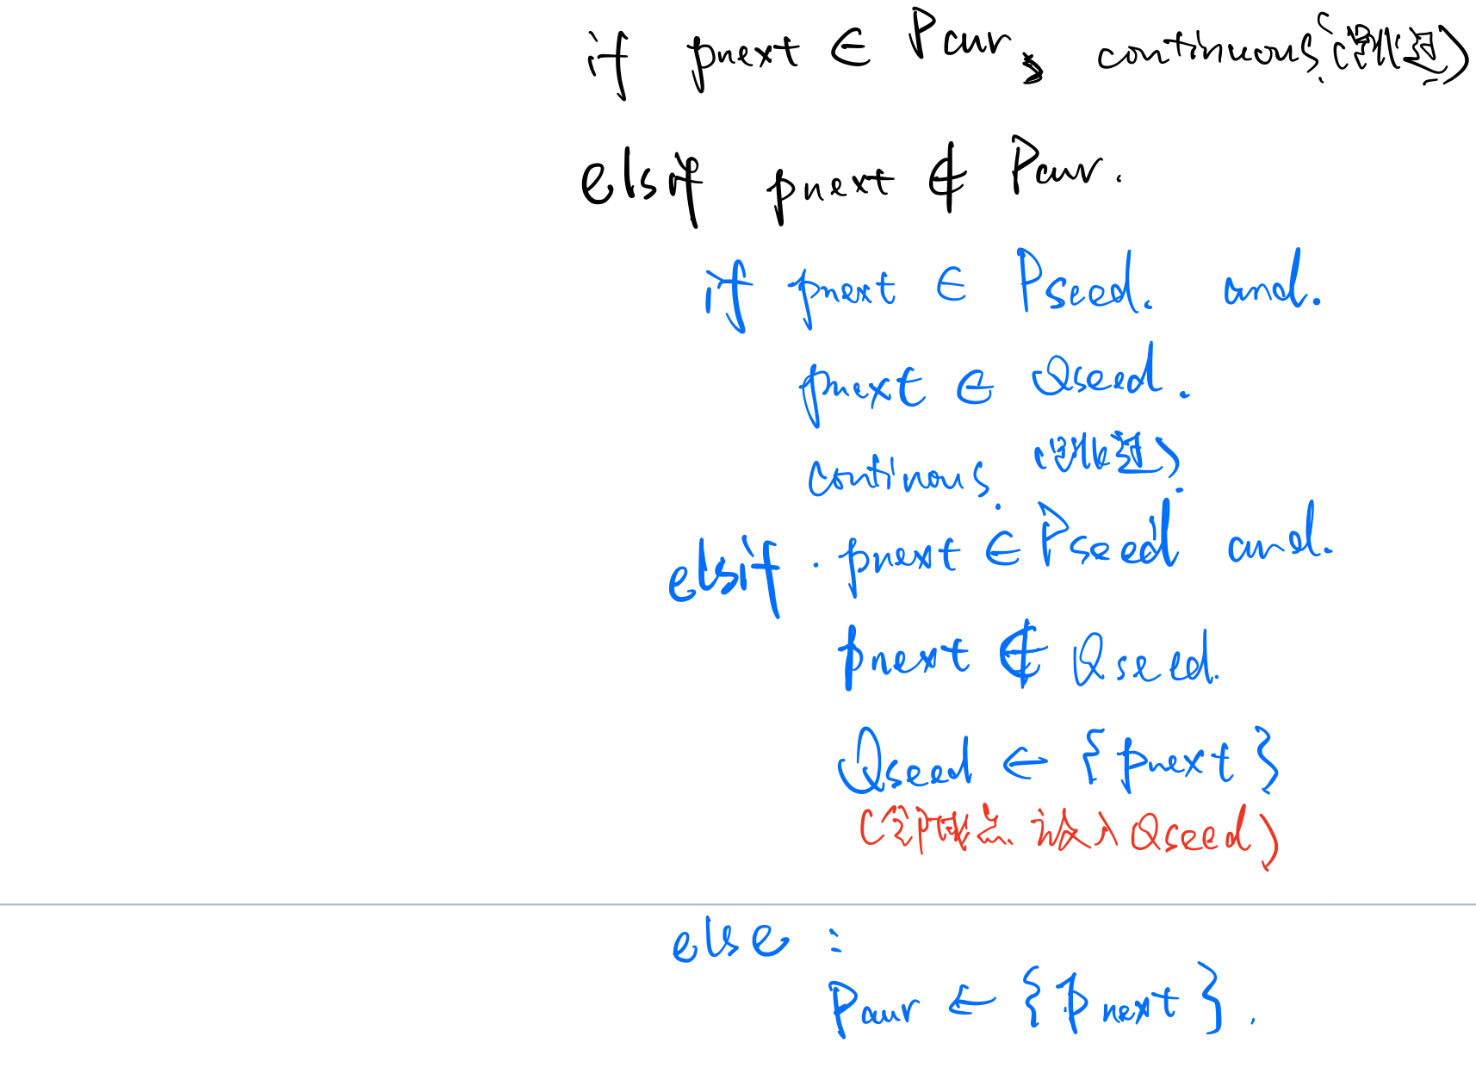 if pnext ∈ Pcur, continuous (跳过)
elsif pnext ∉ Pcur.
if pnext ∈ Pseed. and.
pnext ∈ Qseed.
continous. (跳过)
elsif. pnext ∈ Pseed and.
pnext ∉ Qseed.
Qseed ← {pnext}
(点 放入 Qseed)
else :
Pcur ← {pnext}.